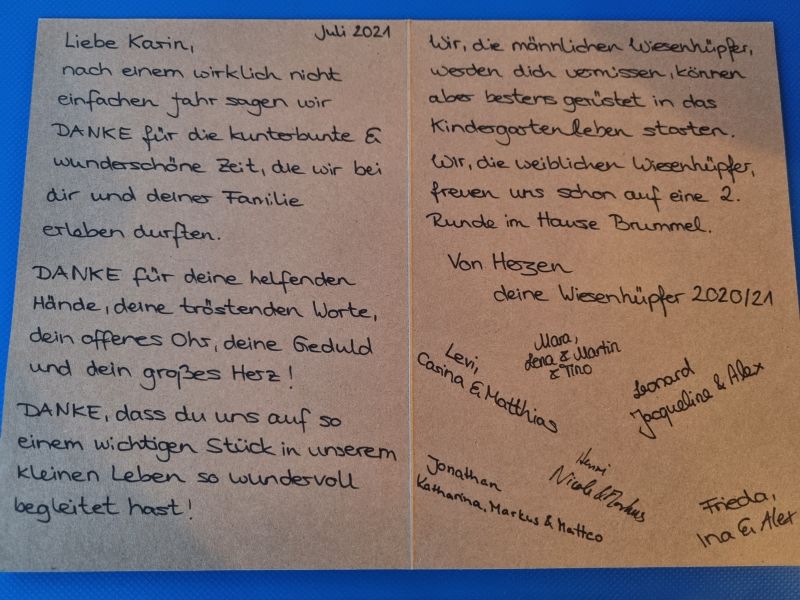 Juli 2021
Liebe Karin,
nach einem wirklich nicht
einfachen Jahr sagen wir
DANKE für die kunterbunte &
wunderschöne Zeit, die wir bei
dir und deiner Familie
erleben durften.
DANKE für deine helfenden
Hände, deine tröstenden Worte,
dein offenes Ohr, deine Geduld
und dein großes Herz!
DANKE, dass du uns auf so
einem wichtigen Stück in unserem
kleinen Leben so wundervoll
begleitet hast!
Wir, die männlichen Wiesenhüpfer,
werden dich vermissen, können
aber bestens gerüstet in das
Kindergartenleben starten.
Wir, die weiblichen Wiesenhüpfer,
freuen uns schon auf eine 2.
Runde im Hause Brummel.
Von Herzen
deine Wiesenhüpfer 2020/21
Levi,
Carina & Matthias
Mara,
Lena & Martin
& Tino
Leonard
Jacqueline & Alex
Jonathan
Katharina, Markus & Matteo
Henri
Nicole & Markus
Frieda,
Ina & Alex